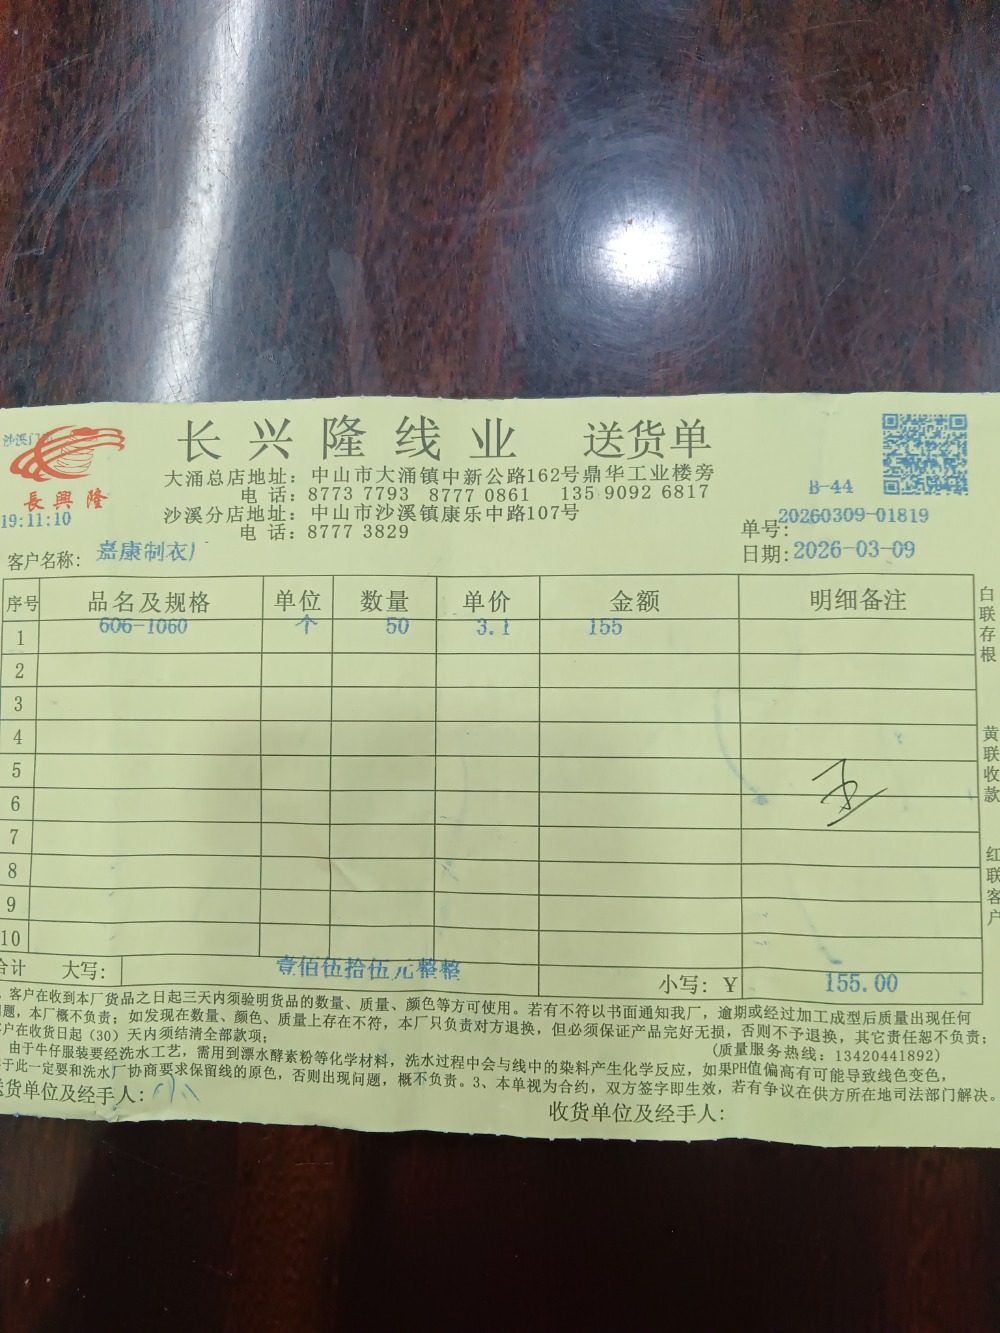 沙溪门
長興隆
19:11:10
长兴隆线业 送货单
大涌总店地址：中山市大涌镇中新公路162号鼎华工业楼旁
电 话：8773 7793 8777 0861 135 9092 6817
沙溪分店地址：中山市沙溪镇康乐中路107号
电 话：8777 3829
B-44
单号：20260309-01819
日期：2026-03-09
客户名称：嘉康制衣厂
序号 品名及规格 单位 数量 单价 金额 明细备注
1 606-1060 个 50 3.1 155
2
3
4
5
6
7
8
9
10
合计 大写：壹佰伍拾伍元整整 小写：Y 155.00
白联存根
黄联收款
红联客户
、客户在收到本厂货品之日起三天内须验明货品的数量、质量、颜色等方可使用。若有不符以书面通知我厂，逾期或经过加工成型后质量出现任何
问题，本厂概不负责；如发现在数量、颜色、质量上存在不符，本厂只负责对方退换，但必须保证产品完好无损，否则不予退换，其它责任恕不负责；
客户在收货日起（30）天内须结清全部款项；
(质量服务热线：13420441892)
由于牛仔服装要经洗水工艺，需用到漂水酵素粉等化学材料，洗水过程中会与线中的染料产生化学反应，如果PH值偏高有可能导致线色变色，
于此一定要和洗水厂协商要求保留线的原色，否则出现问题，概不负责。3、本单视为合约，双方签字即生效，若有争议在供方所在地司法部门解决。
送货单位及经手人：
收货单位及经手人：